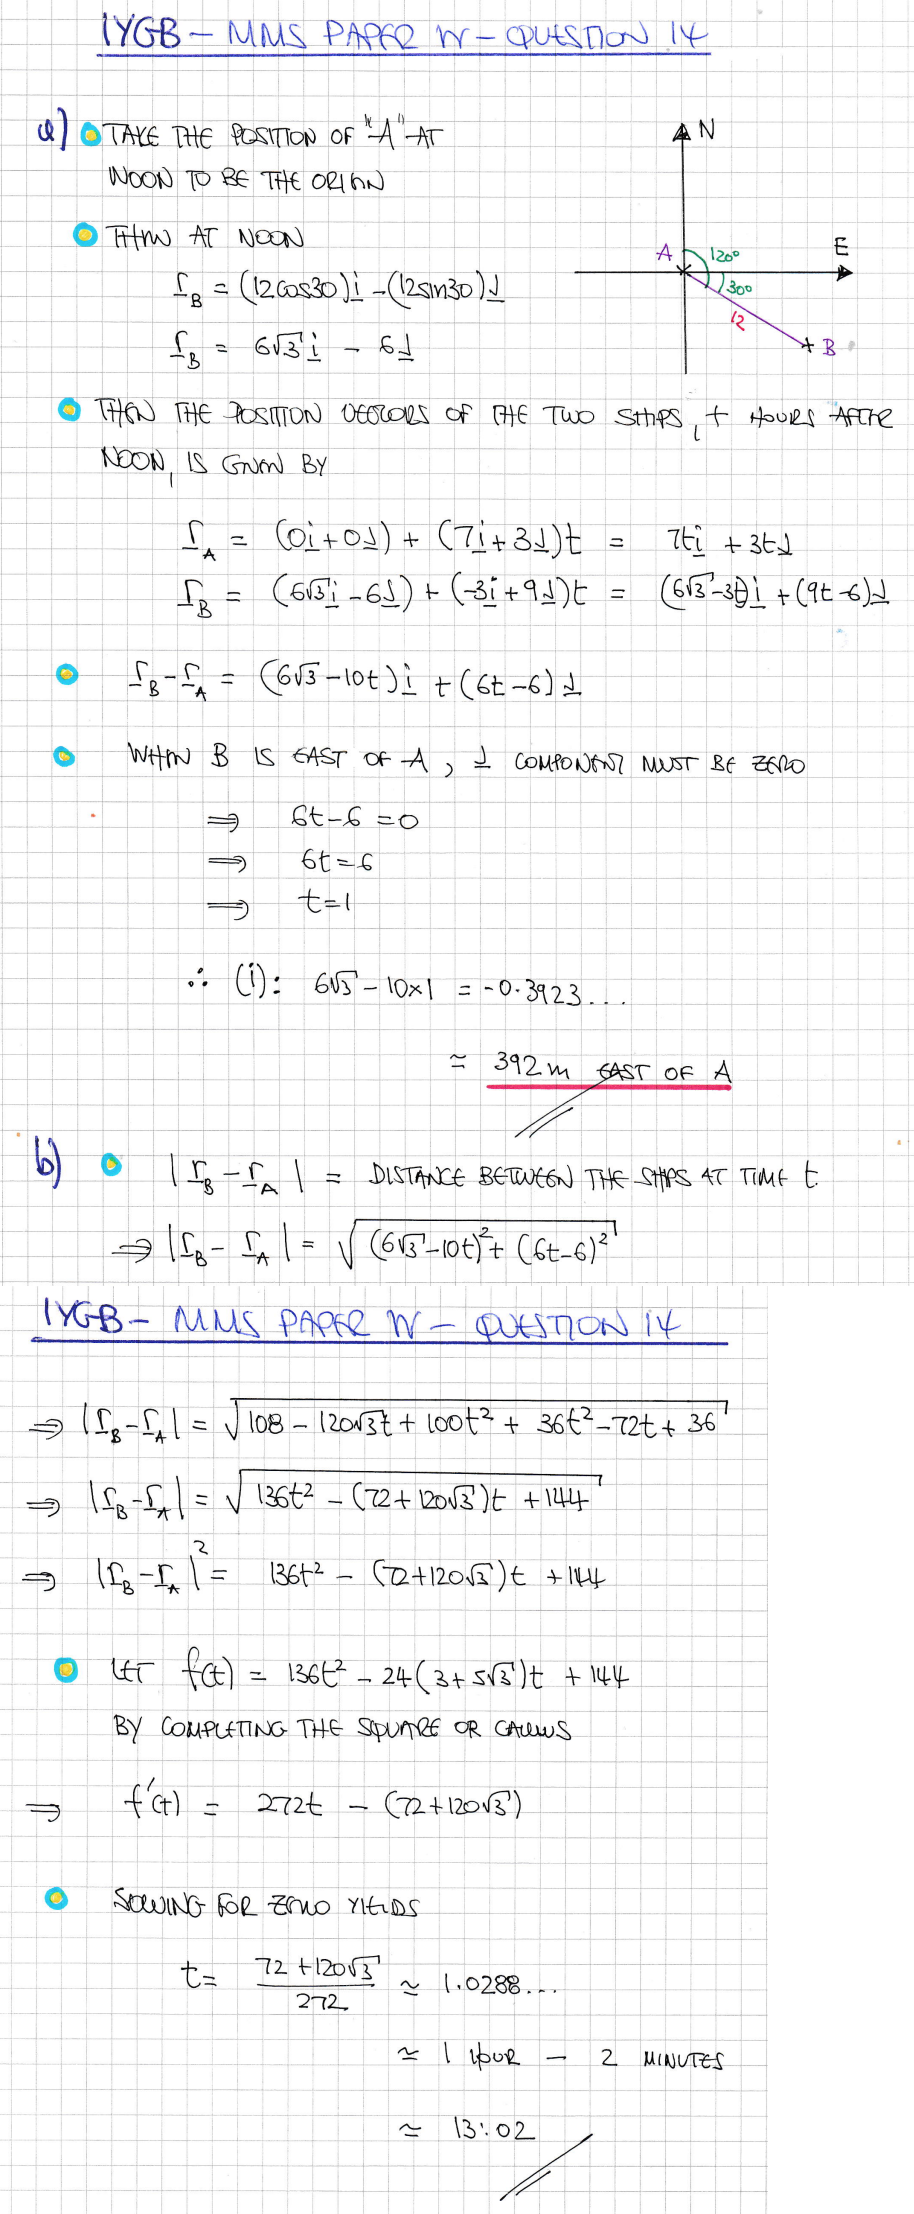 IYGB - MMS PAPER W - QUESTION 14
a) TAKE THE POSITION OF "A" AT
NOON TO BE THE ORIGIN
N
E
A
120°
30°
12
B
THEN AT NOON
r_B = (12cos30)i - (12sin30)j
r_B = 6√3 i - 6j
THEN THE POSITION VECTORS OF THE TWO SHIPS, t HOURS AFTER
NOON, IS GIVEN BY
r_A = (0i + 0j) + (7i + 3j)t = 7ti + 3tj
r_B = (6√3 i - 6j) + (-3i + 9j)t = (6√3 - 3t)i + (9t - 6)j
r_B - r_A = (6√3 - 10t)i + (6t - 6)j
WHEN B IS EAST OF A, j COMPONENT MUST BE ZERO
⇒ 6t - 6 = 0
⇒ 6t = 6
⇒ t = 1
∴ (i): 6√3 - 10×1 = -0.3923...
≈ 392m EAST OF A
b) |r_B - r_A| = DISTANCE BETWEEN THE SHIPS AT TIME t
⇒ |r_B - r_A| = √((6√3 - 10t)² + (6t - 6)²)
IYGB - MMS PAPER W - QUESTION 14
⇒ |r_B - r_A| = √(108 - 120√3t + 100t² + 36t² - 72t + 36)
⇒ |r_B - r_A| = √(136t² - (72 + 120√3)t + 144)
⇒ |r_B - r_A|² = 136t² - (72 + 120√3)t + 144
LET f(t) = 136t² - 24(3 + 5√3)t + 144
BY COMPLETING THE SQUARE OR CALCULUS
⇒ f'(t) = 272t - (72 + 120√3)
SOLVING FOR ZERO YIELDS
t = (72 + 120√3)/272 ≈ 1.0288...
≈ 1 HOUR - 2 MINUTES
≈ 13:02